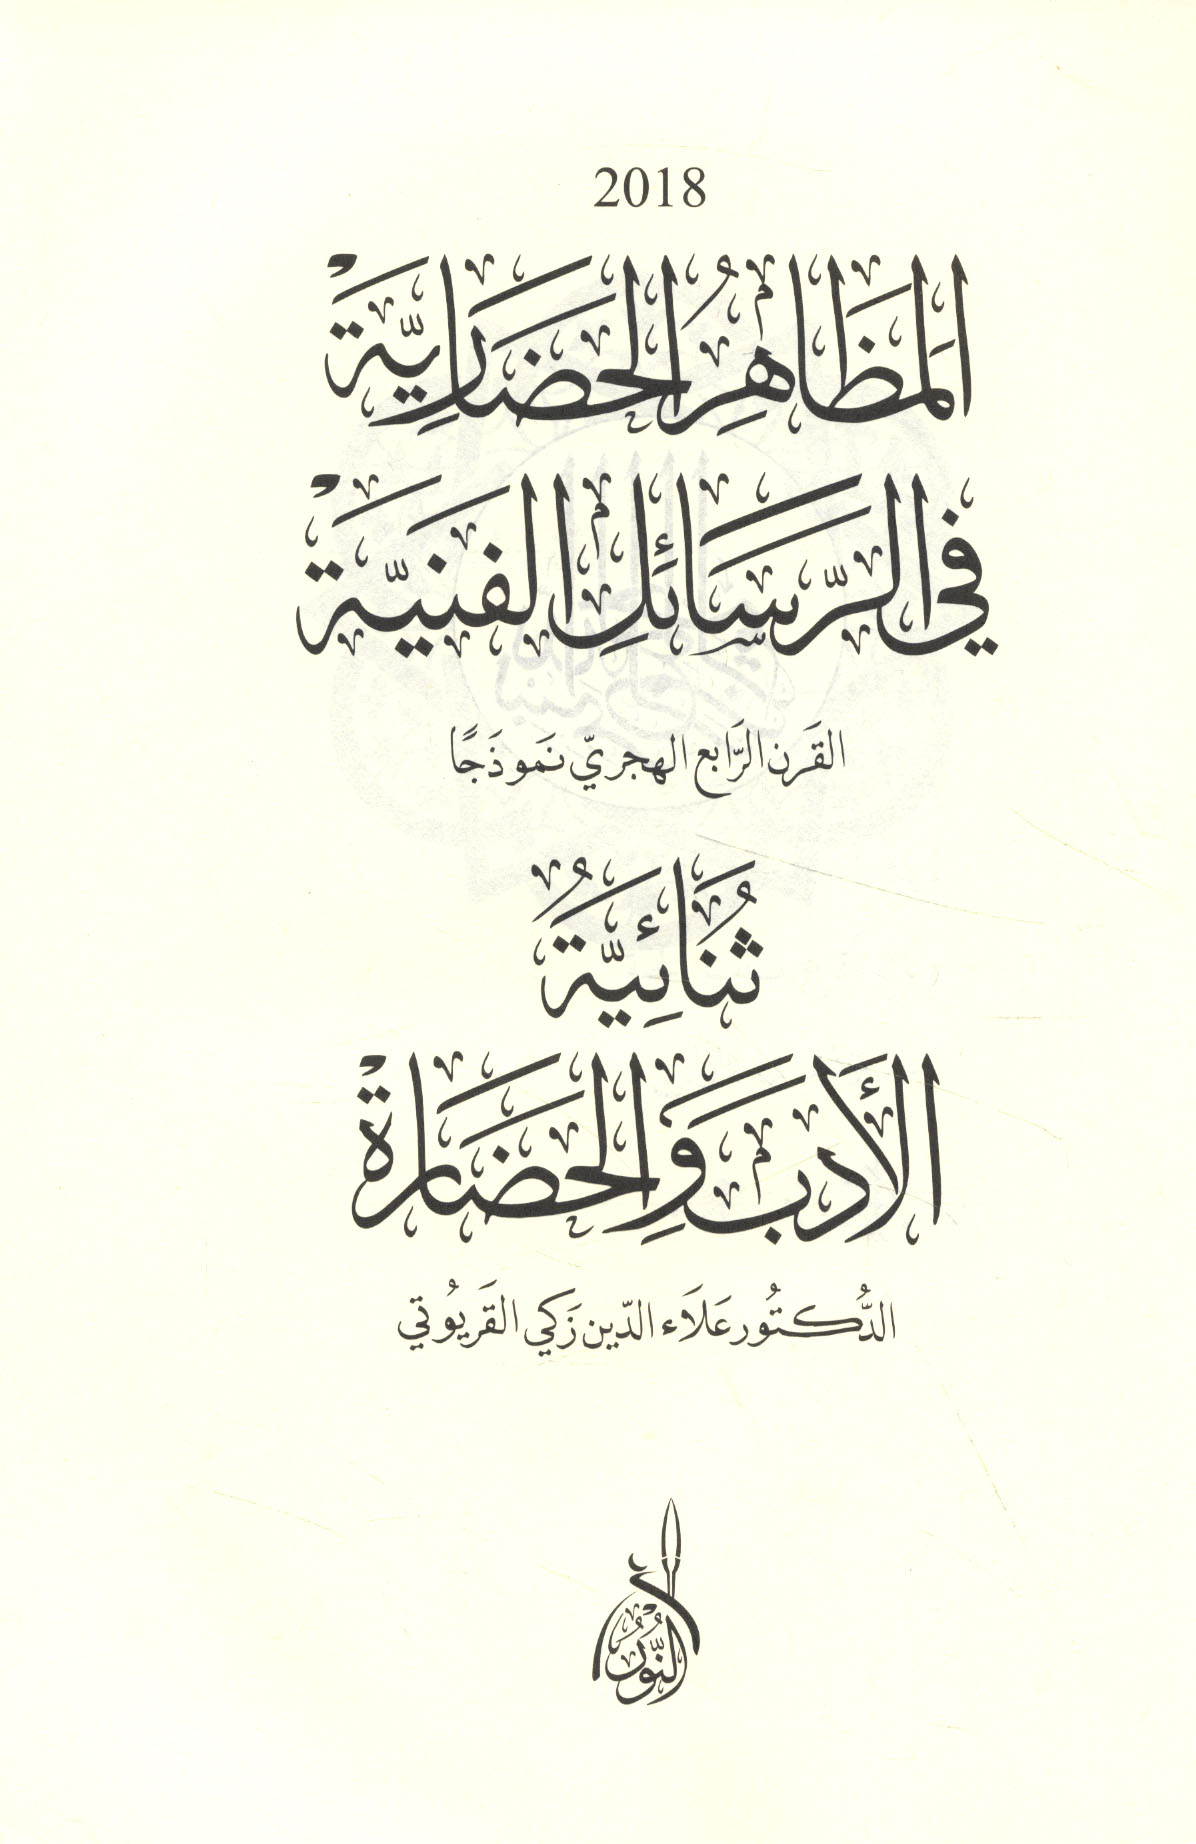 2018
المظاهر الحضارية
في الرسائل الفنية
القرن الرابع الهجري نموذجًا
ثنائية
الأدب والحضارة
الدكتور علاء الدين زكي القريوتي
النور